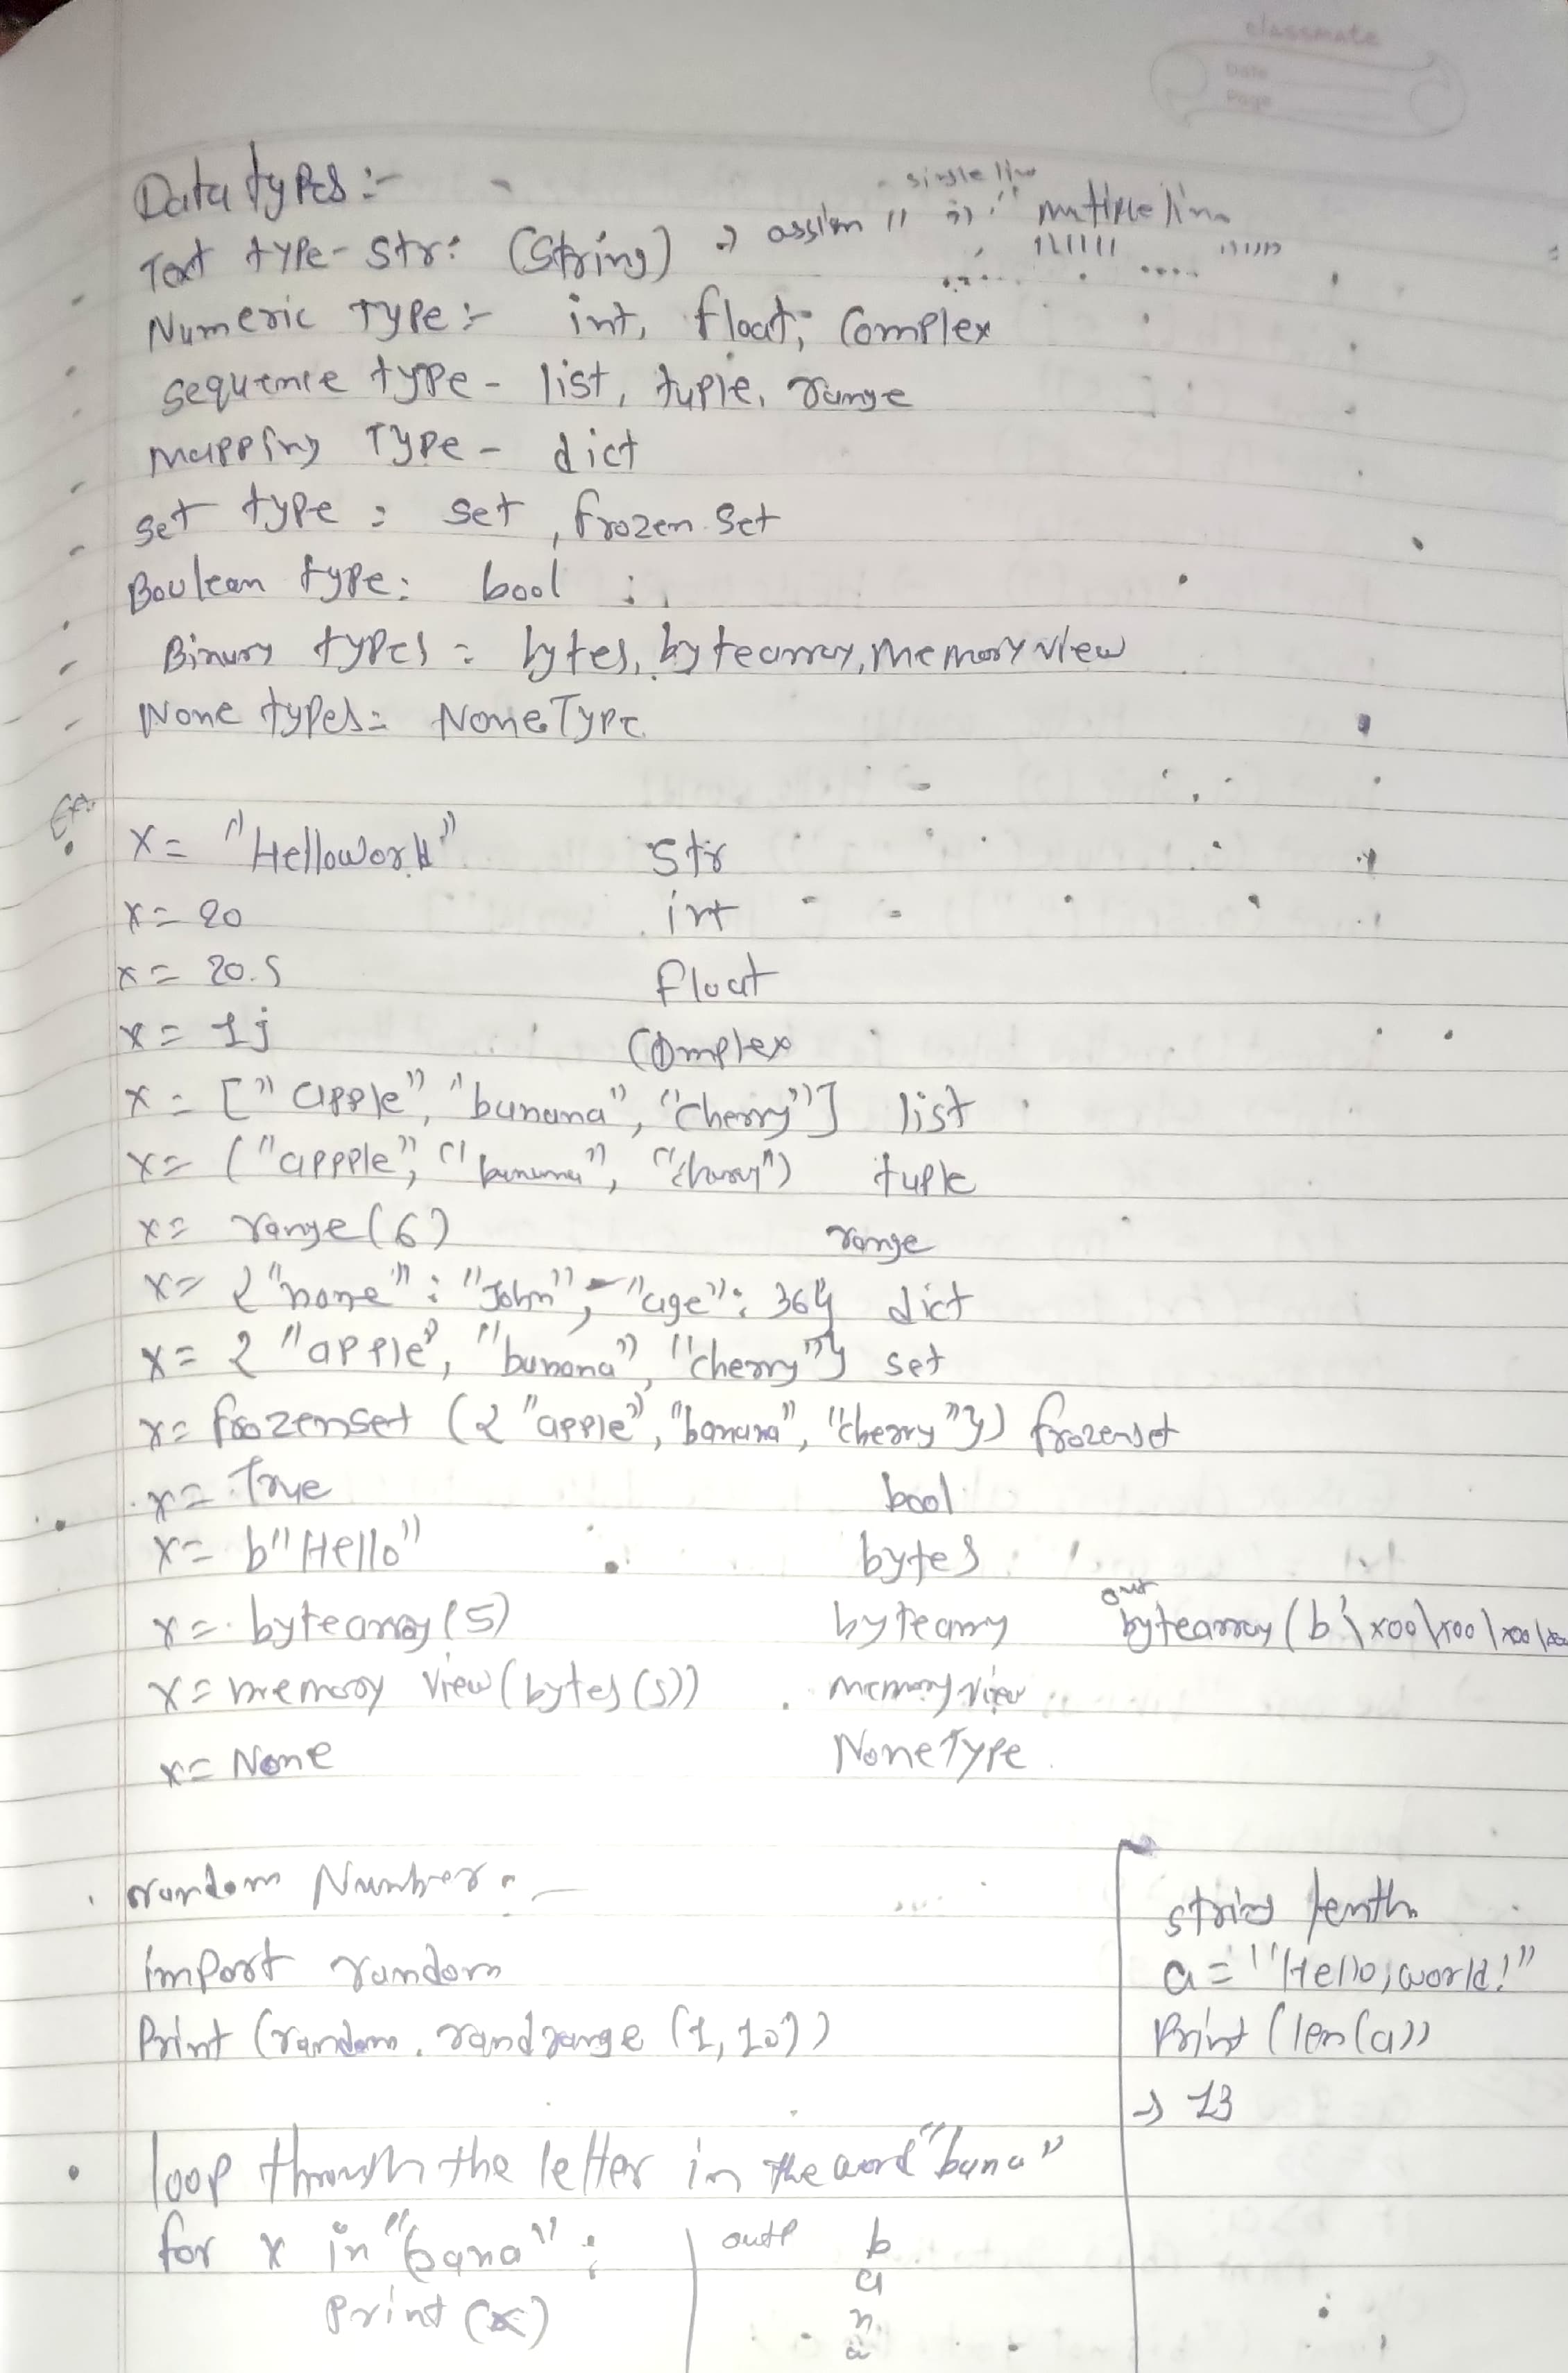 classmate
Date
Page
Data types :-
single line
Text type - Str : (String) → assign " " " multiple line
""" """
Numeric Type :- int, float, Complex
Sequence type - list, tuple, range
Mapping Type - dict
set type : set, frozen set
Boulean type : bool
Binary types : bytes, bytearray, memoryview
None types : NoneType
Ex.
x = "Helloworld" Str
x = 20 int
x = 20.5 float
x = 1j Complex
x = ["apple", "banana", "cherry"] list
x = ("appple", "banana", "cherry") tuple
x = range(6) range
x = {"name" : "John", "age" : 36} dict
x = {"apple", "banana", "cherry"} set
x = frozenset ({"apple", "banana", "cherry"}) frozenset
x = True bool
x = b"Hello" bytes
out
x = bytearray(5) bytearray bytearray(b'\x00\x00\x00\x00
x = memory view(bytes(5)) memoryview
x = None NoneType
random Number :-
import random
Print (random.randrange (1, 10))
string lenth
a = "Hello, world!"
Print (len(a))
→ 13
loop through the letter in the word "bana"
for x in "bana" :
print (x)
outp b
a
n
a